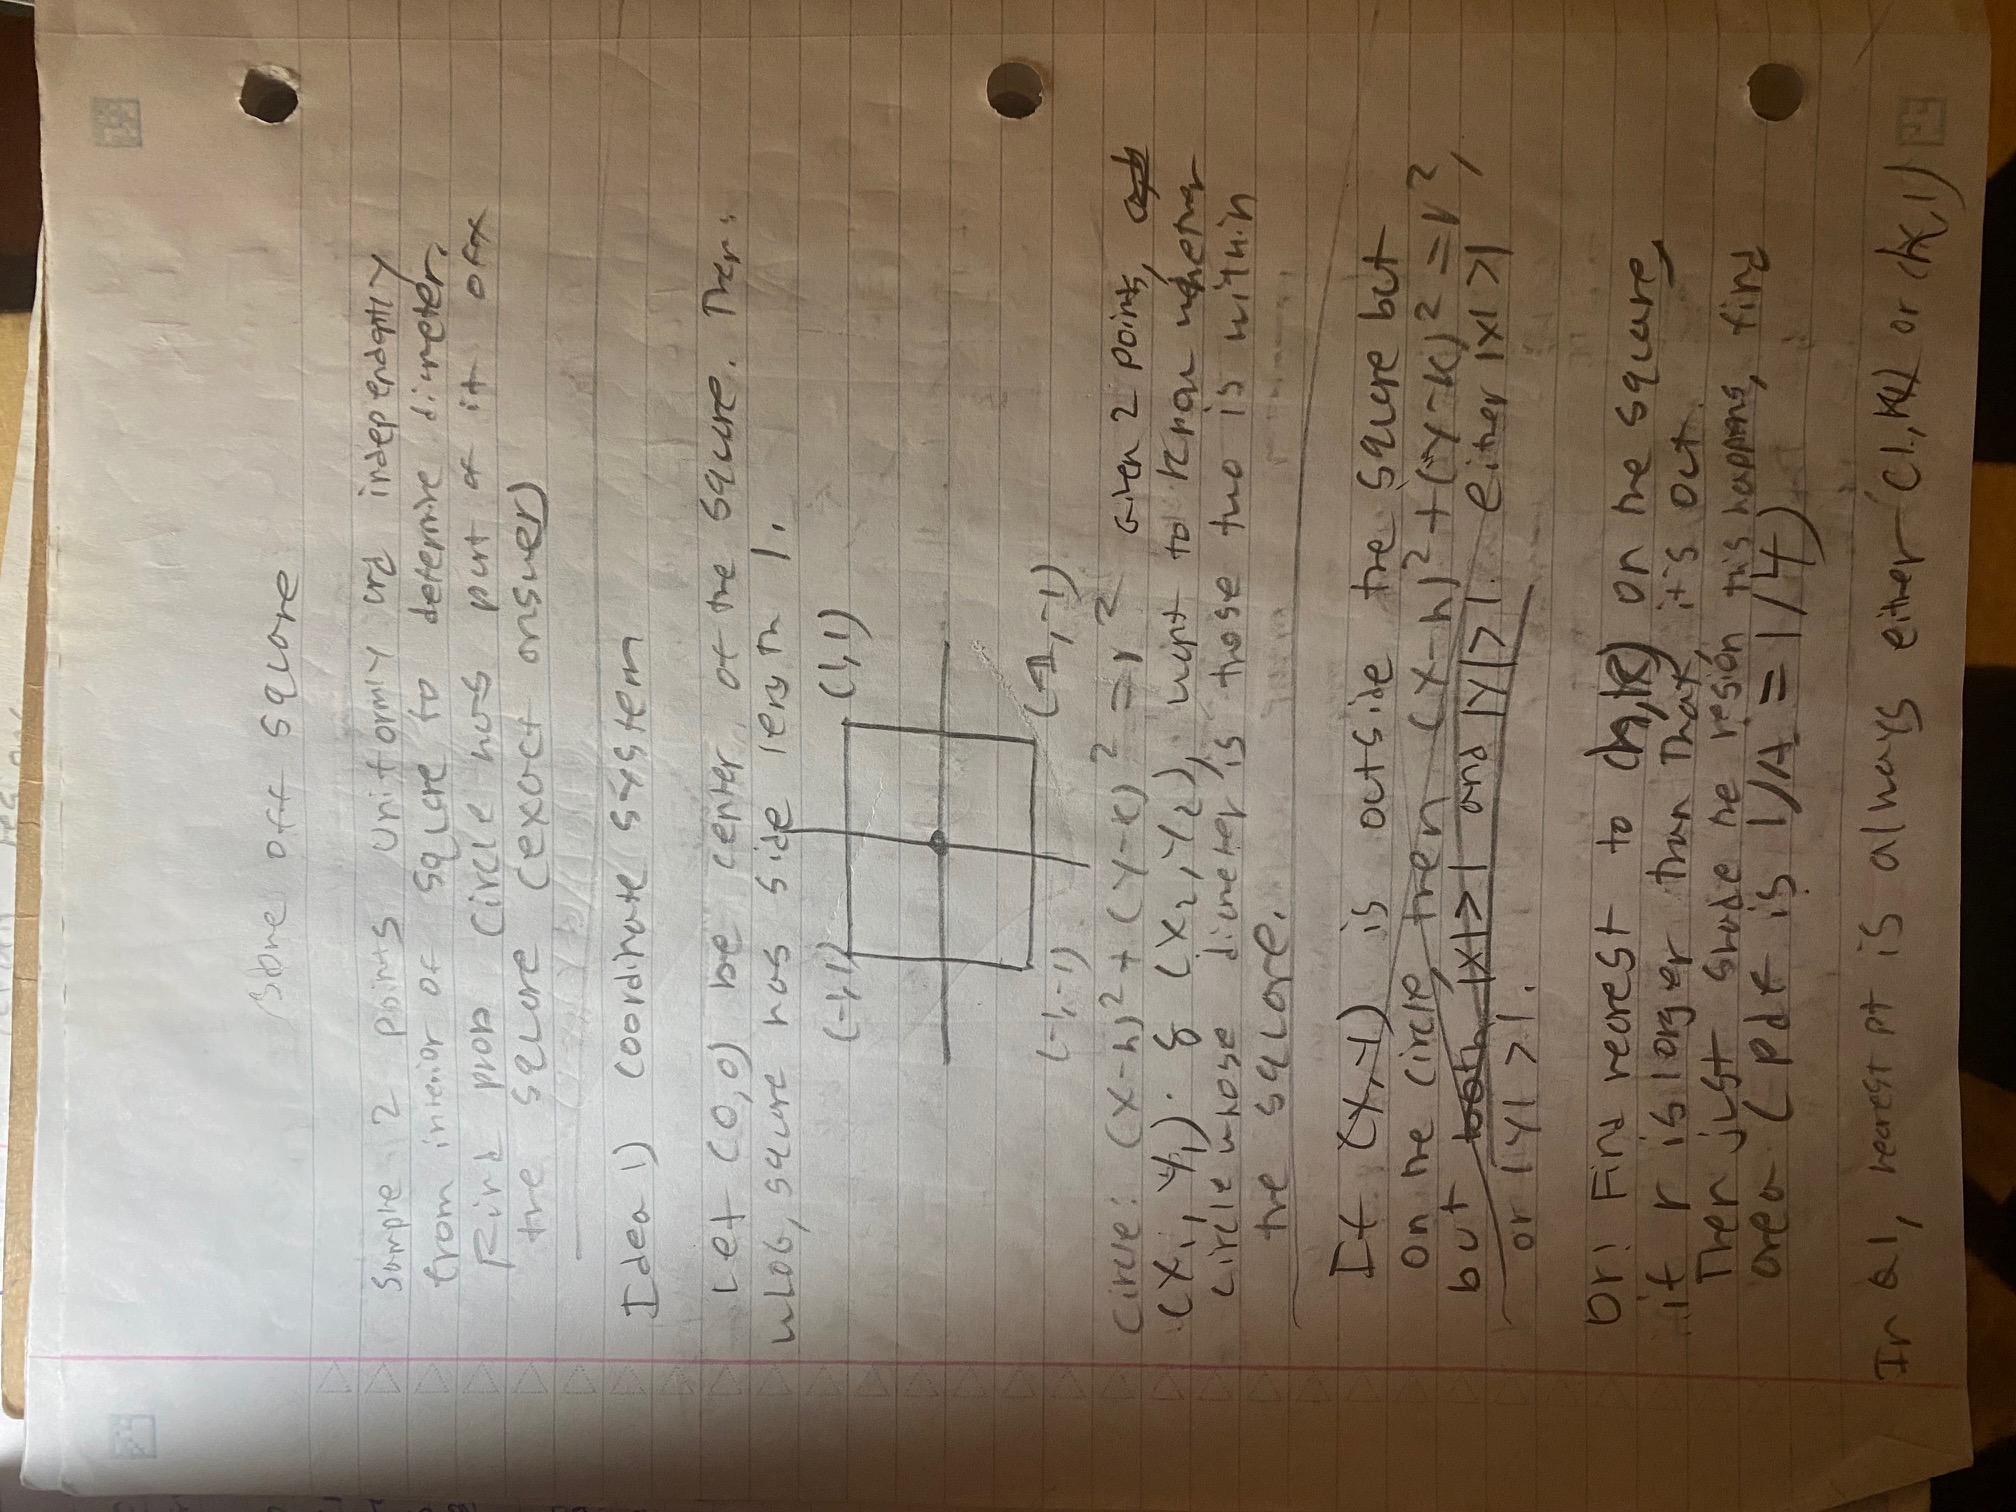 Bone off square
Sample 2 points uniformly and independently
from interior of square to determine diameter.
Find prob circle has part of it off
the square (exact answer)
Idea 1) coordinate system
Let (0,0) be center of the square. Then,
WLOG, square has side length 1.
(-1,1) (1,1)
(-1,-1) (1,-1)
Circle: (x-h)² + (y-k)² = r² Given 2 points,
(x₁, y₁) & (x₂, y₂), want to know whether
circle whose diameter is those two is within
the square.
If (x,y) is outside the square but
on the circle, then (x-h)² + (y-k)² = r²,
but both |x|>1 and |y|>1. either |x|>1
or |y|>1.
Or! Find nearest to (h,k) on the square,
if r is longer than that, it's out.
Then just shade the region this happens, find
area (pdf is 1/A = 1/4)
In Q1, nearest pt is always either (1,k) or (h,1)